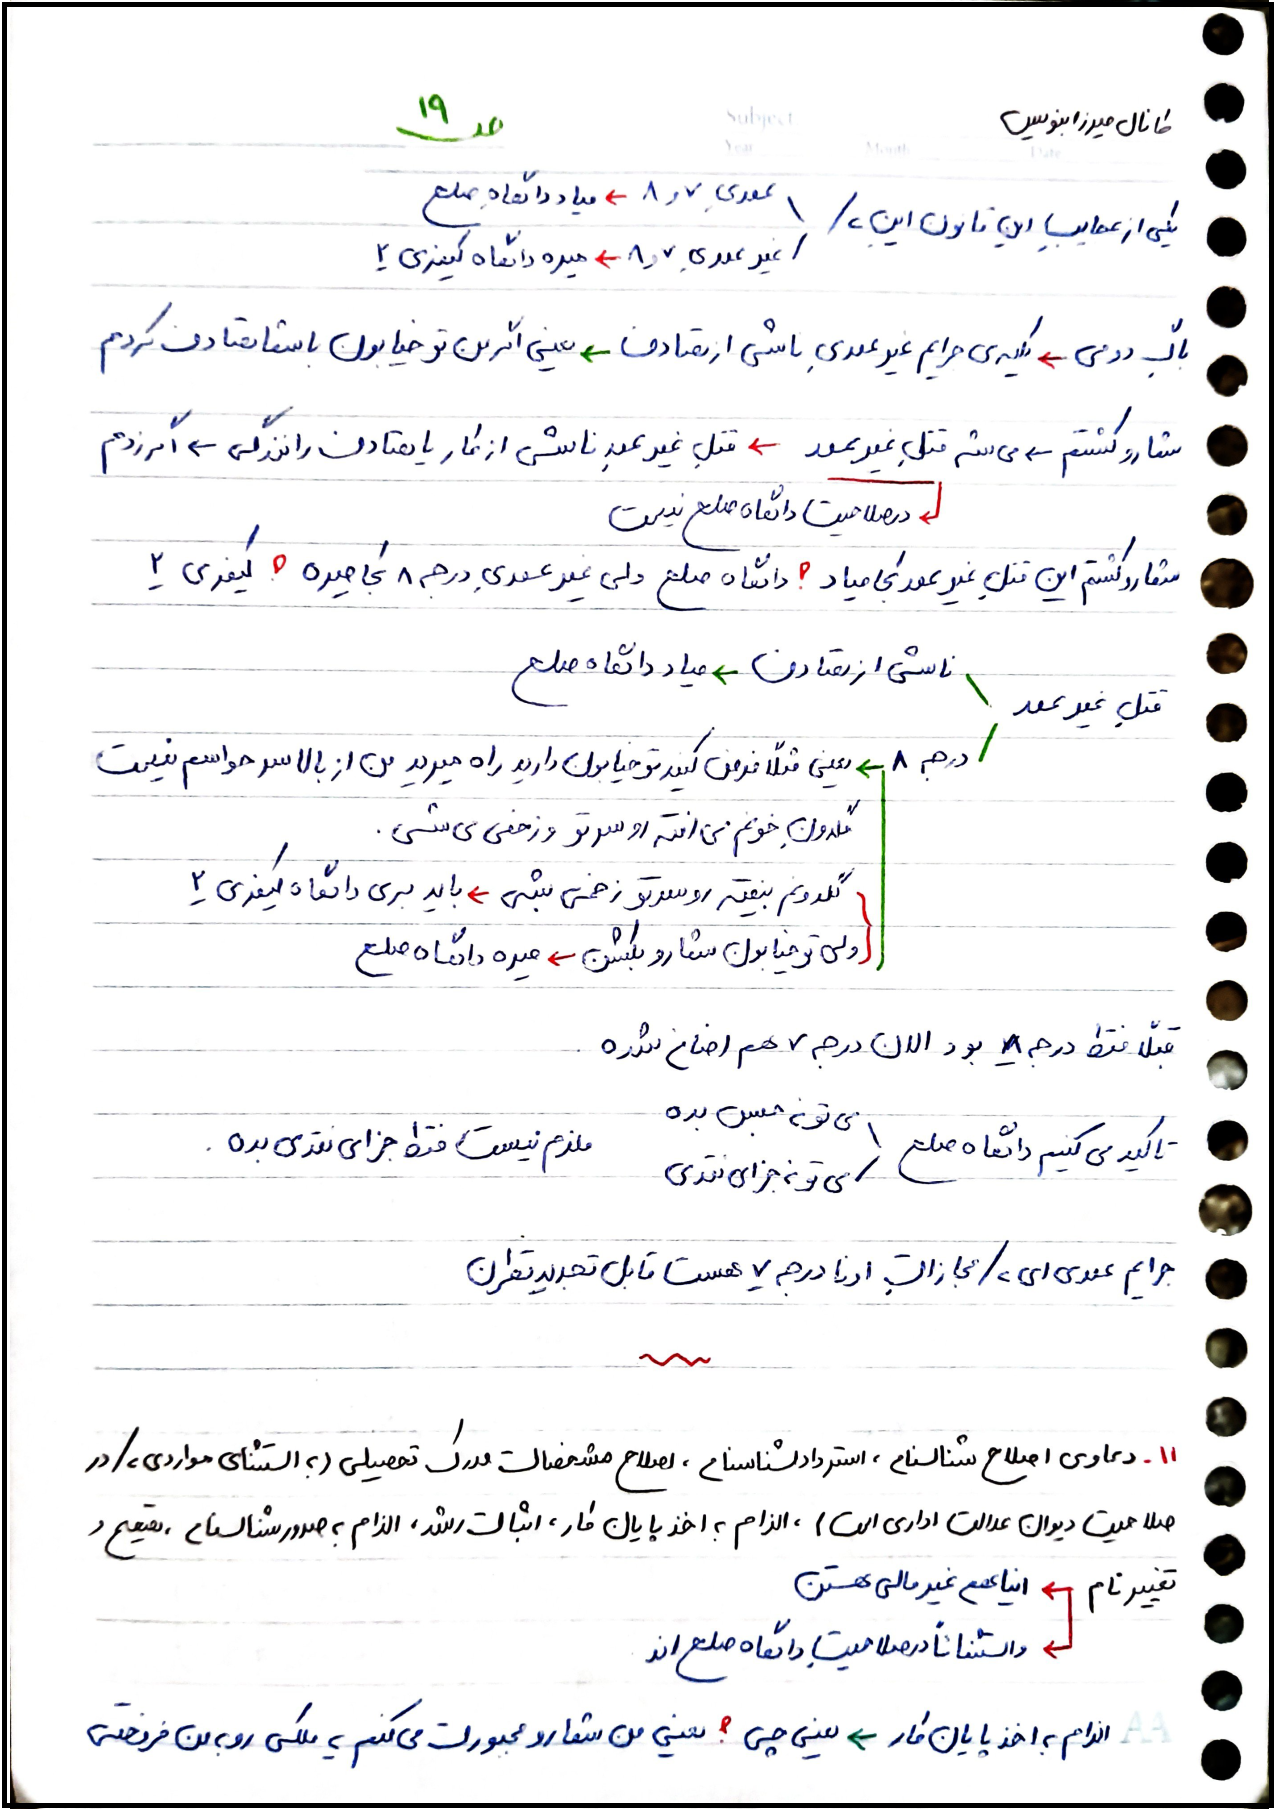 کانال میرزا بنویس
ص ۱۹
Subject
Year Month Date
یکی از معایب این قانون اینه که / عمدیِ ۷ و ۸ ← میاد دادگاه صلح
غیر عمدیِ ۷ و ۸ ← میره دادگاه کیفری ۲
باگ دومی ← کلیه‌ی جرایم غیر عمدیِ ناشی از تصادف ← یعنی اگر من تو خیابون با شما تصادف کردم
شما رو کشتم ← می‌شه قتلِ غیر عمد ← قتلِ غیر عمدِ ناشی از کار یا تصادف رانندگی ← اگر زدم
در صلاحیت دادگاه صلح نیست
شما رو کشتم این قتلِ غیر عمد کجا میاد ؟ دادگاه صلح ولی غیر عمدیِ درجه ۸ کجا میره ؟ کیفری ۲
ناشی از تصادف ← میاد دادگاه صلح
قتلِ غیر عمد
درجه ۸ ← یعنی مثلاً فرض کنید تو خیابون دارید راه میرید من از بالا سر حواسم نیست
گلدونِ خونم می‌افته رو سر تو و زخمی می‌شی .
گلدونم بیفته رو سر تو زخمی بشی ← باید بری دادگاه کیفری ۲
ولی تو خیابون شما رو بکشن ← میره دادگاه صلح
قبلاً فقط درجه ۸ بود الان درجه ۷ هم اضافه شده .
تاکید می‌کنیم دادگاه صلح \ می‌تونه حبس بده
/ می‌تونه جزای نقدی
ملزم نیست فقط جزای نقدی بده .
جرایم عمدی‌ای که / مجازاتِ اونا درجه ۷ هست قابل تجدیدنظرن
۱۱- دعاوی اصلاح شناسنامه ، استرداد شناسنامه ، اصلاح مشخصات مدرک تحصیلی (به استثنای مواردی که / در
صلاحیت دیوان عدالت اداری است) ، الزام به اخذ پایان کار ، اثبات رشد ، الزام به صدور شناسنامه ، تصحیح و
تغییر نام ← اینا هم غیر مالی هستن
← و استثنائاً در صلاحیتِ دادگاه صلح اند
الزام به اخذ پایان کار ← یعنی چی ؟ یعنی من شما رو مجبورت می‌کنم یه ملکی رو به من فروختی